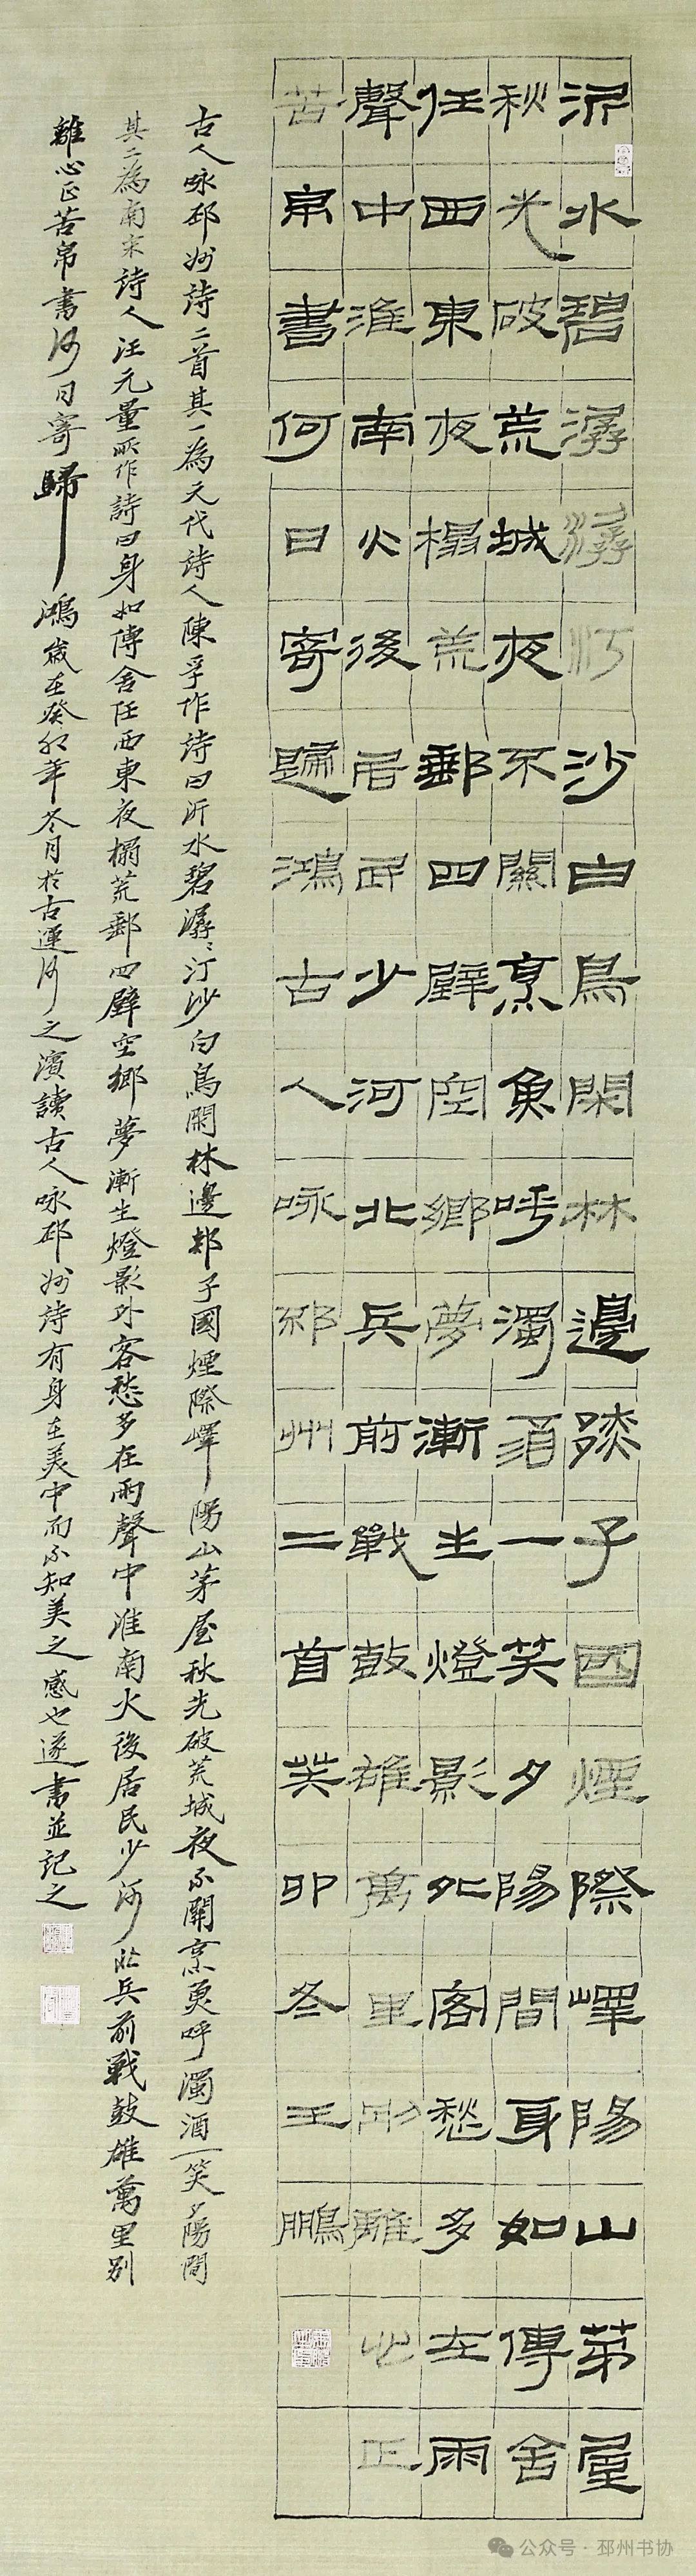 沂水碧潺潺汀沙白鳥閑林邊郯子國煙際嶧陽山茅屋
秋光破荒城夜不關烹魚呼濁酒一笑夕陽間身如傳舍
任西東夜榻荒郵四壁空鄉夢漸生燈影外客愁多在雨
聲中淮南火後居民少河北兵前戰鼓雄萬里別離心正
苦帛書何日寄歸鴻古人咏邳州二首癸卯冬王鵬
古人咏邳州詩二首其一為元代詩人陳孚作詩曰沂水碧潺々汀沙白鳥閑林邊郯子國煙際嶧陽山茅屋秋光破荒城夜不關烹魚呼濁酒一笑夕陽間
其二為南宋詩人汪元量所作詩曰身如傳舍任西東夜榻荒郵四壁空鄉夢漸生燈影外客愁多在雨聲中淮南火後居民少河北兵前戰鼓雄萬里別
離心正苦帛書何日寄歸鴻歲在癸卯年冬月於古運河之濱讀古人咏邳州詩有身在美中而不知美之感也遂書並記之
公众号·邳州书协